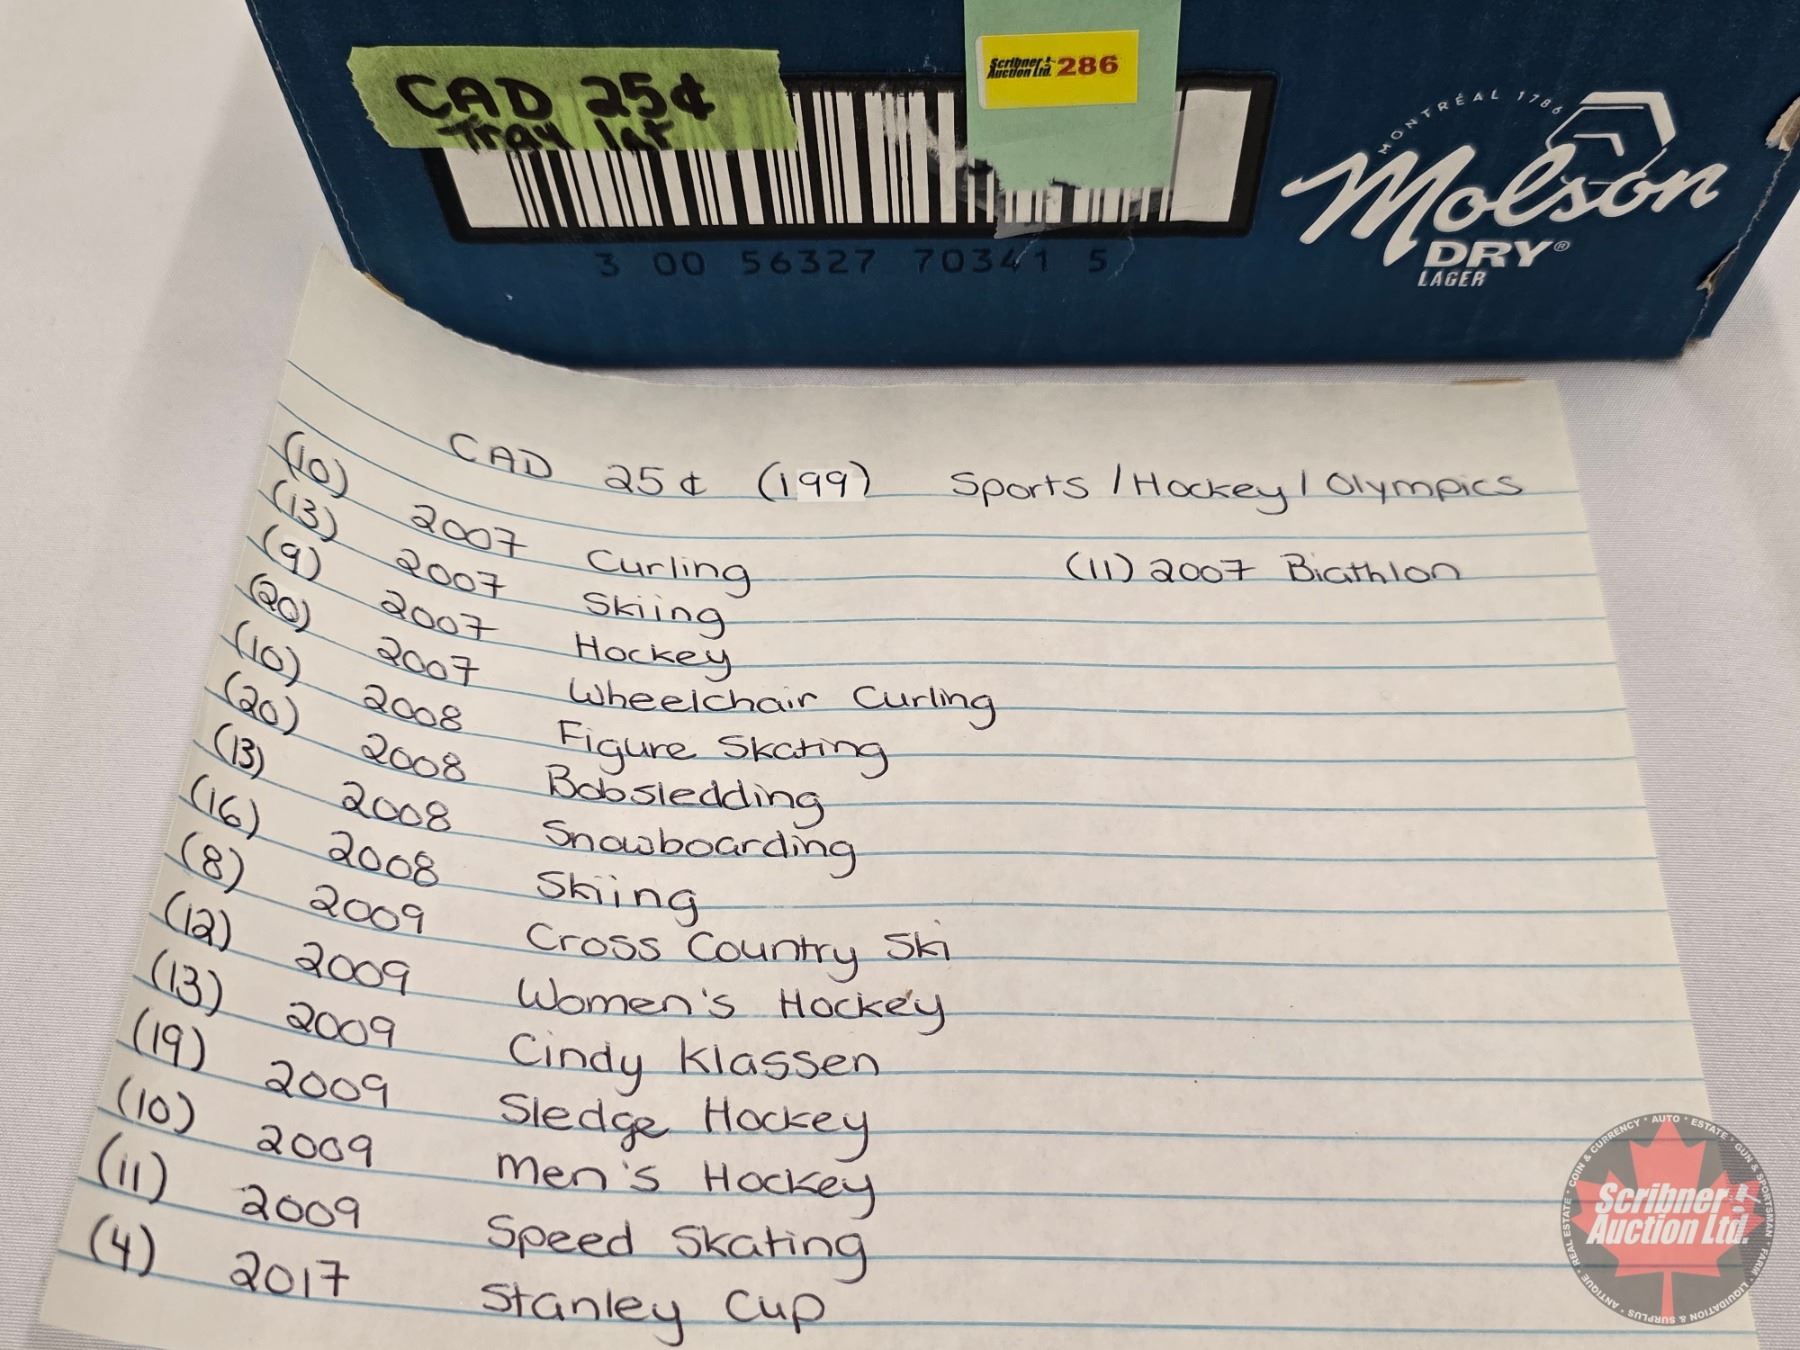 CAD 25¢
Tray lot
Scribner Auction Ltd. 286
MONTRÉAL 1786
Molson
DRY®
LAGER
3 00 56327 70341 5
CAD 25¢ (199) Sports / Hockey / Olympics
(10) 2007 Curling
(11) 2007 Biathlon
(13) 2007 Skiing
(9) 2007 Hockey
(20) 2007 Wheelchair Curling
(10) 2008 Figure Skating
(20) 2008 Bobsledding
(13) 2008 Snowboarding
(16) 2008 Skiing
(8) 2009 Cross Country Ski
(12) 2009 Women's Hockey
(13) 2009 Cindy Klassen
(19) 2009 Sledge Hockey
(10) 2009 Men's Hockey
(11) 2009 Speed Skating
(4) 2017 Stanley Cup
Scribner
Auction Ltd.
ANTIQUE • REAL ESTATE • COIN & CURRENCY • AUTO • ESTATE • GUN & SPORTSMAN • FARM • LIQUIDATION & SURPLUS